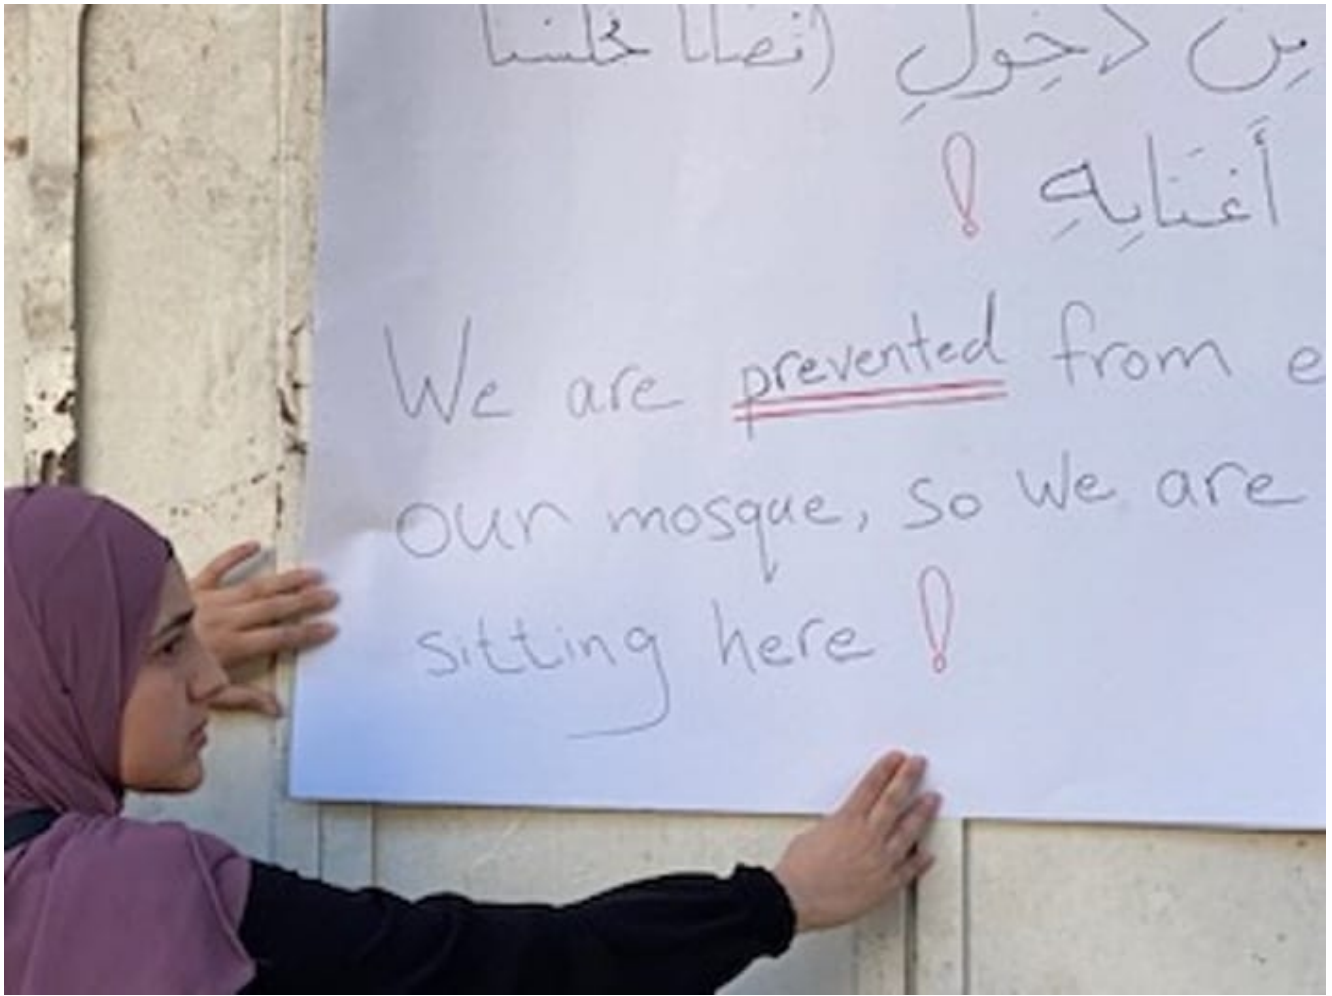 مِن دخولِ (قصانا مجلسنا
أعتابِهِ !
We are prevented from e
our mosque, so we are
sitting here !